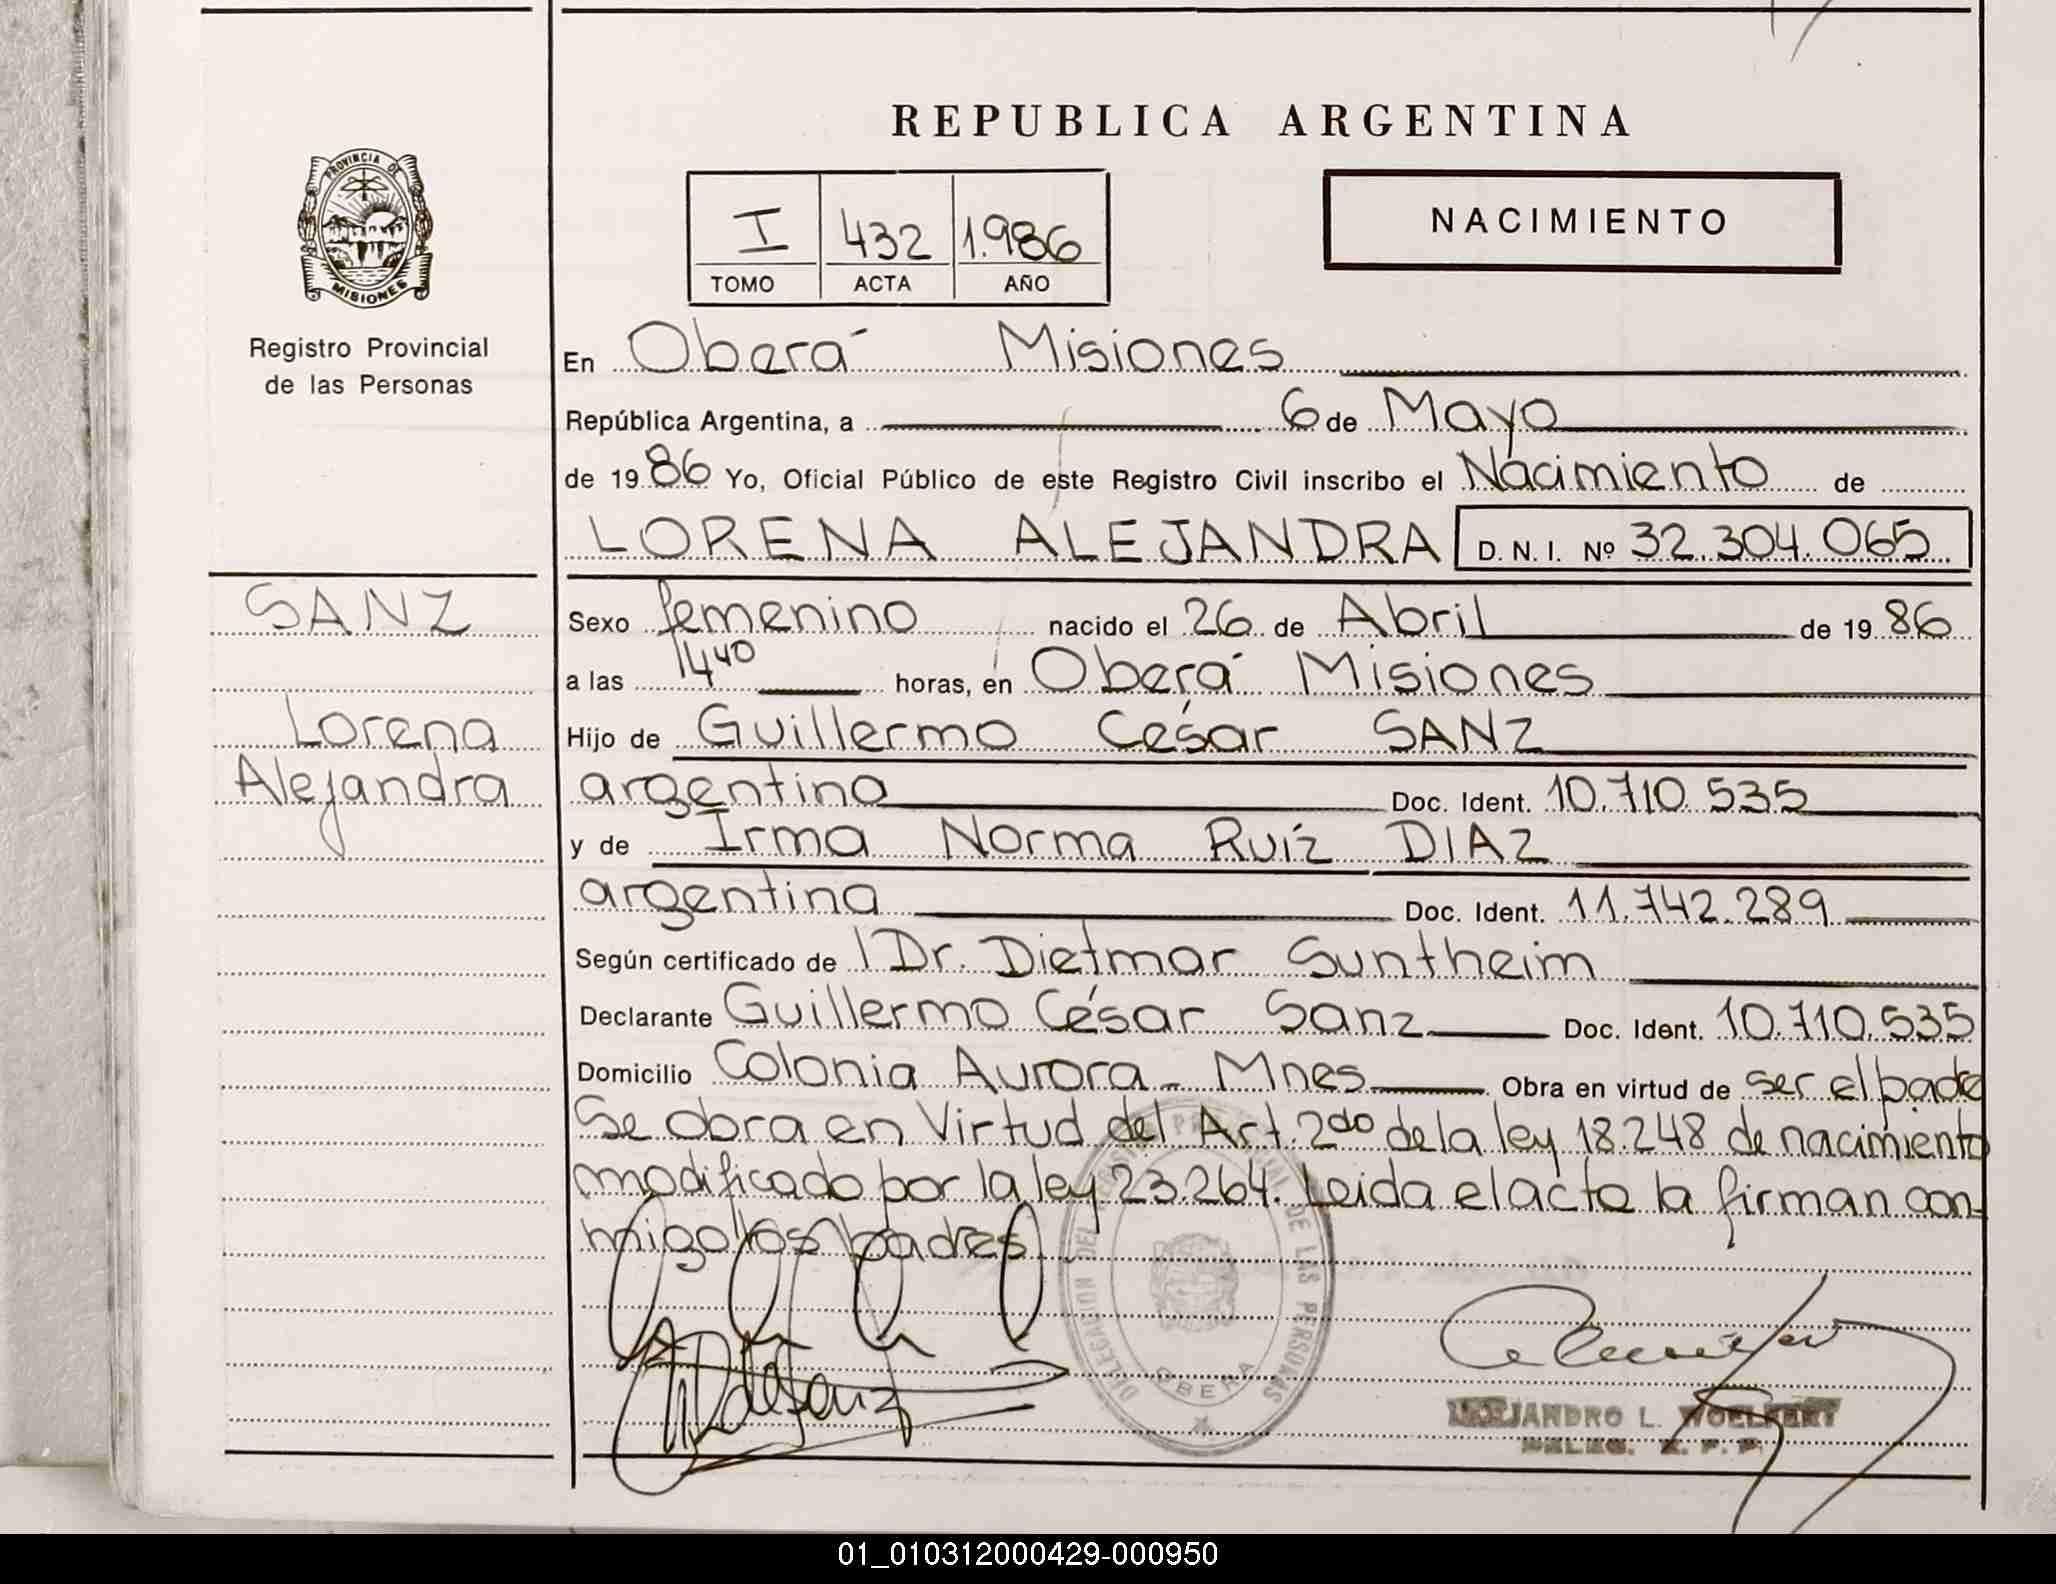 REPUBLICA ARGENTINA
PROVINCIA DE MISIONES
Registro Provincial
de las Personas
I 432 1.986
TOMO ACTA AÑO
NACIMIENTO
En Oberá Misiones
República Argentina, a 6 de Mayo
de 1986 Yo, Oficial Público de este Registro Civil inscribo el Nacimiento de
LORENA ALEJANDRA D. N. I. Nº 32.304.065
SANZ
Lorena
Alejandra
Sexo femenino nacido el 26 de Abril de 1986
a las 14 40 horas, en Oberá Misiones
Hijo de Guillermo César SANZ
argentino Doc. Ident. 10.710.535
y de Irma Norma Ruíz DIAZ
argentina Doc. Ident. 11.742.289
Según certificado de Dr. Dietmar Suntheim
Declarante Guillermo César Sanz Doc. Ident. 10.710.535
Domicilio Colonia Aurora - Mnes Obra en virtud de ser el padre
Se obra en Virtud del Art. 2do de la ley 18.248 de nacimiento
modificado por la ley 23.264. Leida el acta la firman con-
migo los padres
DELEGACION DEL REGISTRO PROVINCIAL DE LAS PERSONAS
OBERA
de Sanz
ALEJANDRO L. WOELKERT
DELEG. R. P. P.
01_010312000429-000950